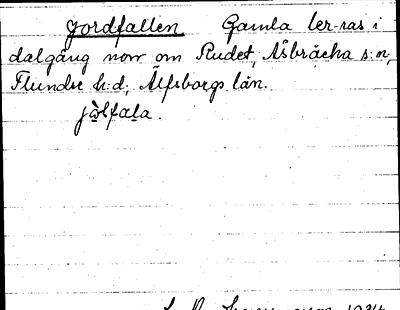 Jordfallen Gamla ler-ras i
dalgång norr om Rudet, Åsbräcka s:n,
Flundre h:d, Älfsborgs län.
jo̱lfala.
1934